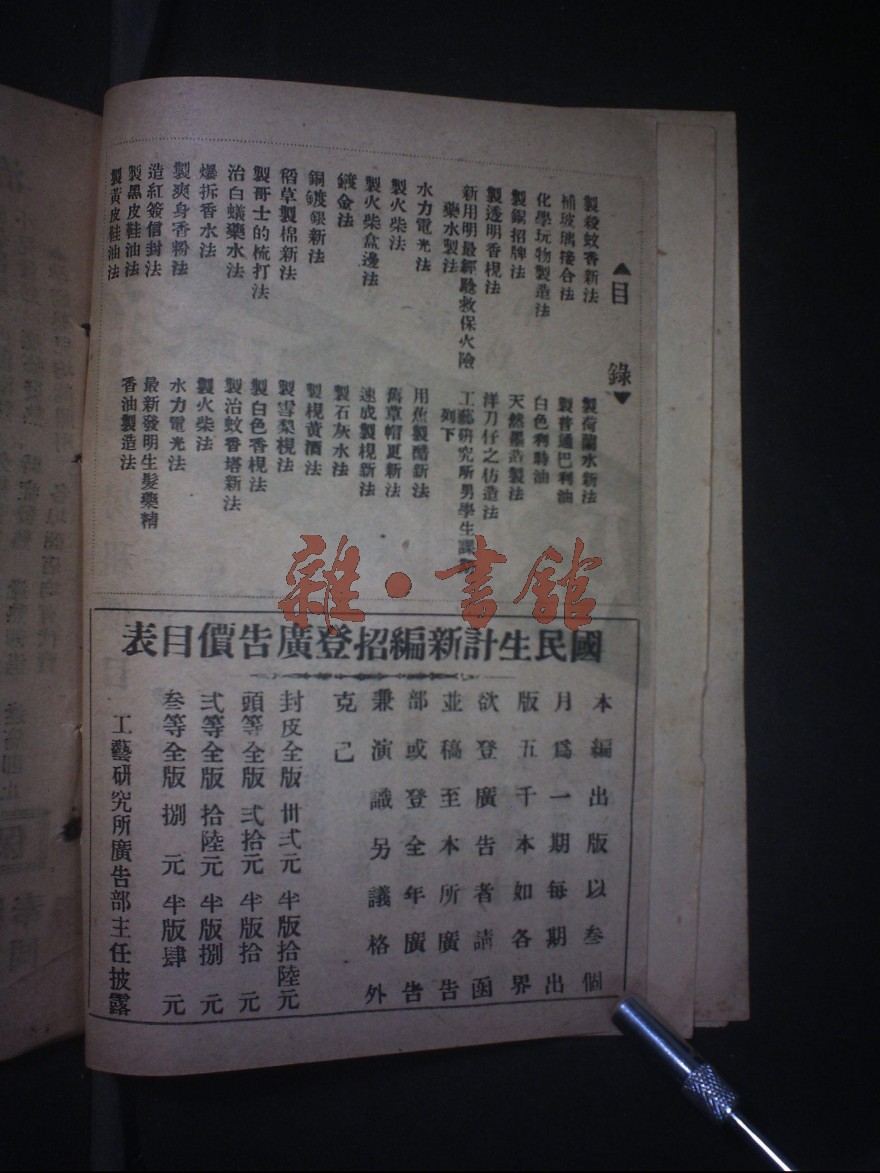 ▲目 錄▼
製殺蚊香新法
補玻璃接合法
化學玩物製造法
製銀招牌法
製透明香梘法
新用明最經騐救保火險
藥水製法
水力電光法
製火柴法
製火柴盒邊法
鍍金法
銅鍍銀新法
稻草製棉新法
製哥士的梳打法
治白蟻藥水法
爆拆香水法
製爽身香粉法
造紅簽信封法
製黑皮鞋油法
製黃皮鞋油法
製荷蘭水新法
製普通巴利油
白色利時油
天然墨造製法
洋刀仔之仿造法
工藝研究所男學生課
列下
用蕉製醋新法
舊草帽更新法
速成製梘新法
製梘黄酒法
製石灰水法
製雪梨梘法
製白色香梘法
製治蚊香塔新法
製火柴法
水力電光法
最新發明生髮藥精
香油製造法
雜·書館
國民生計新編招登廣告價目表
本編出版以叁個
月爲一期每期出
版五千本如各界
欲登廣告者請函
並稿至本所廣告
部或登全年廣告
兼演識另議格外
克己
封皮全版 卅弍元 半版拾陸元
頭等全版 弍拾元 半版拾元
弍等全版 拾陸元 半版捌元
叁等全版 捌元 半版肆元
工藝研究所廣告部主任披露